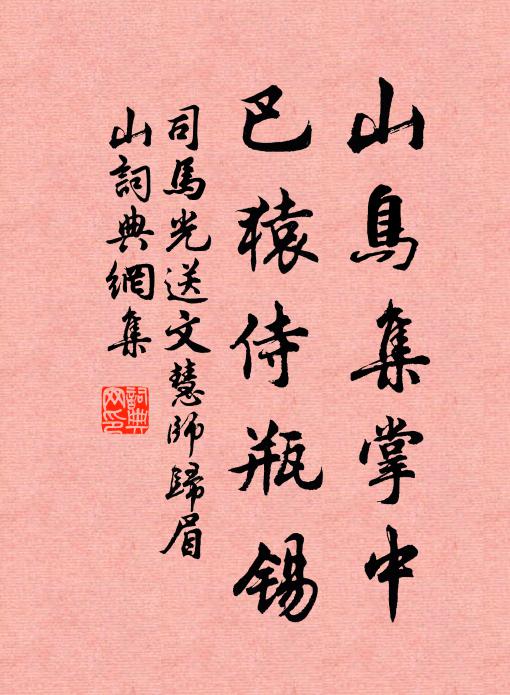 山鳥集掌中
巴猿侍瓶錫
司馬光送文慧師歸眉
山詞典網集
詞典
网印